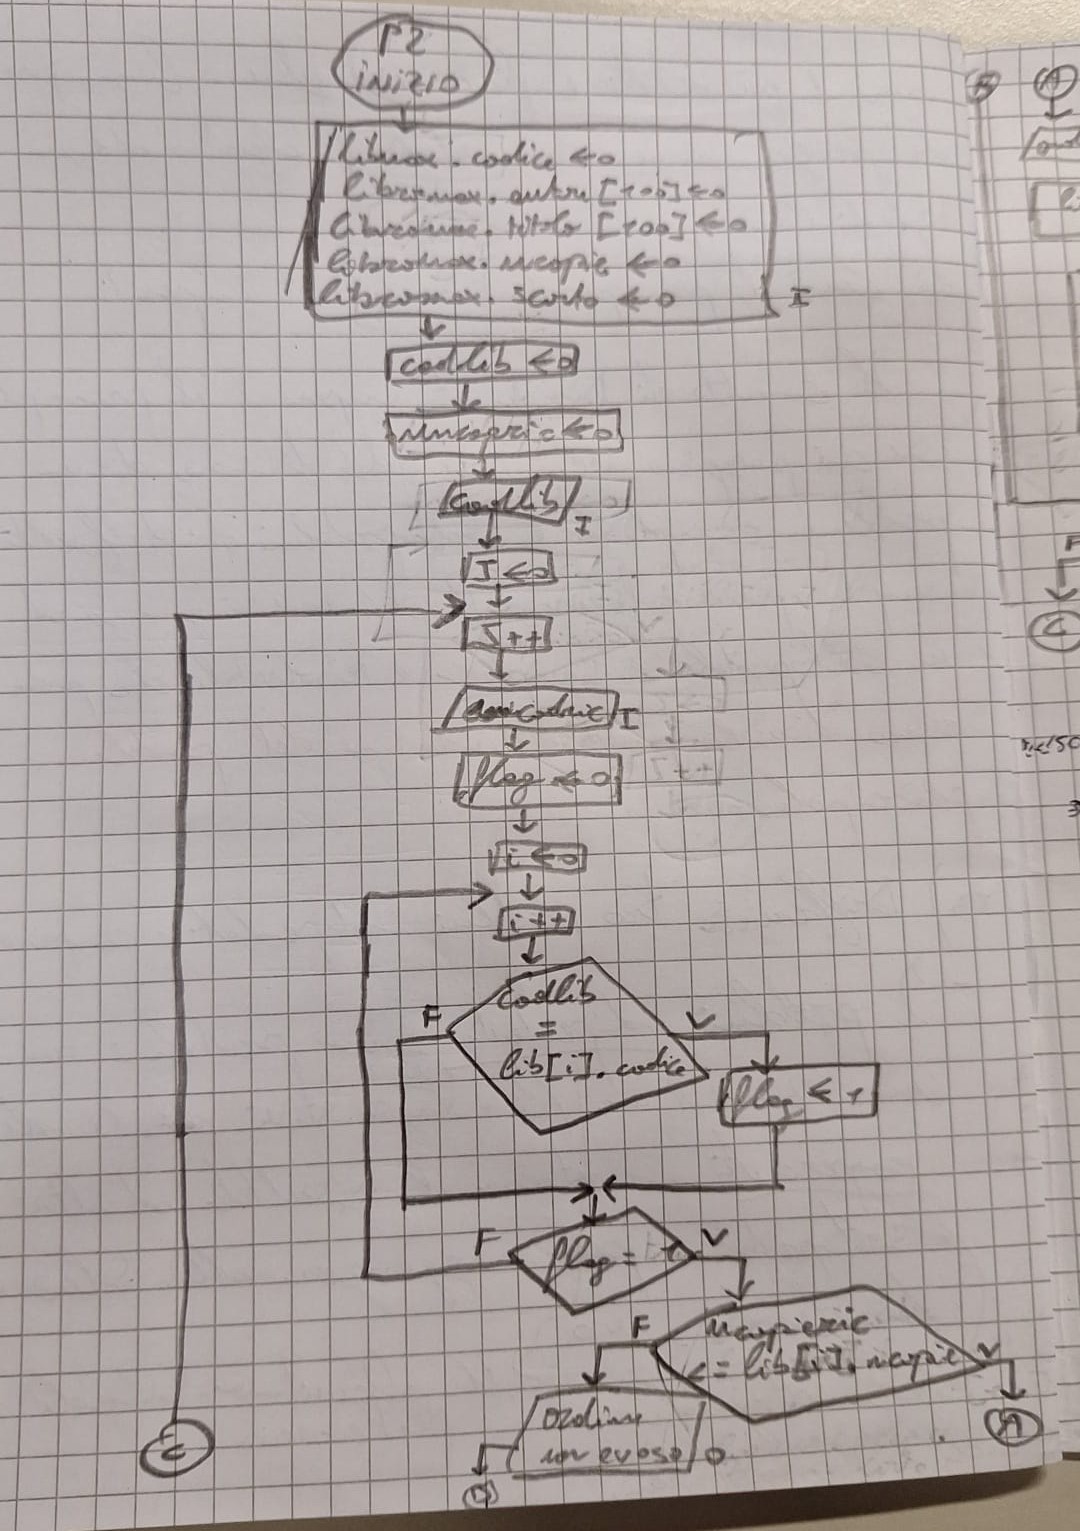 P2
INIZIO
libmax.codice ← 0
libromax.autore [100] ← 0
libromax.titolo [100] ← 0
libromax.ncopie ← 0
libromax.sconto ← 0
I
codlib ← 0
codlib
I
J ← 0
J++
I
flag ← 0
i ← 0
i++
codlib
F
=
V
lib[i].codice
flag ← 1
F
flag = 1
V
F
ncopieric
<= lib[i].ncopie
V
Ordine
non evaso
O
A
C
A
F
C